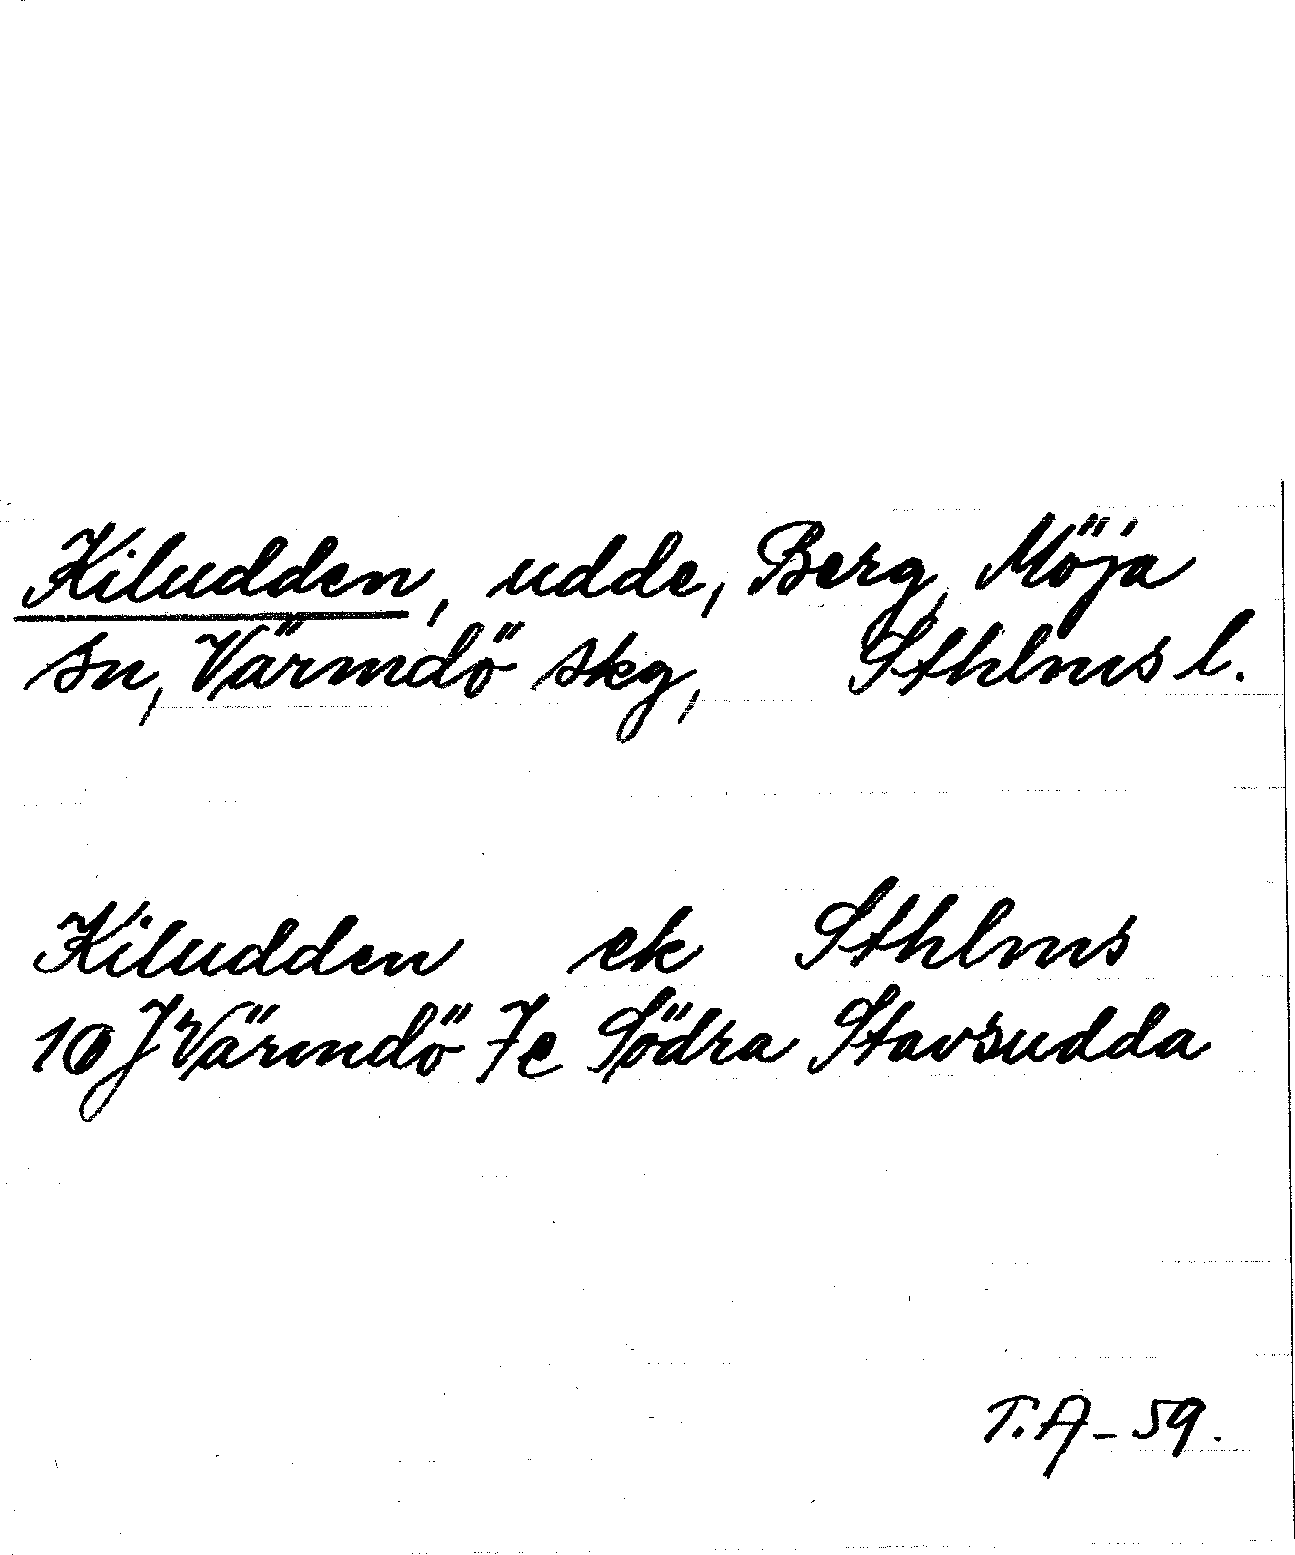 Kiludden, udde, Berg, Möja
sn, Värmdö skg, Sthlms l.
Kiludden ek Sthlms
10 J Värmdö 7e Södra Stavsudda
T.A - 59.